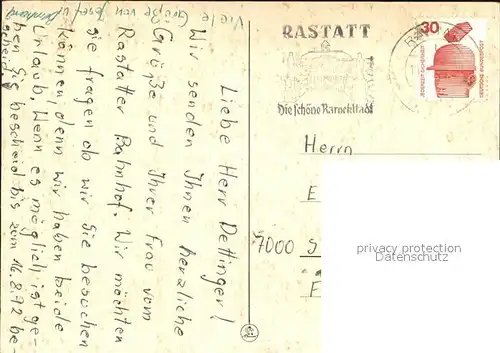 Liebe Herr Dettinger!
Wir senden Ihnen herzliche
Grüße und Ihrer Frau vom
Rastatter Bahnhof. Wir möchten
sie fragen ob wir Sie besuchen
können, denn wir haben beide
Urlaub. Wenn es möglich ist ge-
hen Sie bescheid bis zum 16.8.72 be-
scheid.
Viele
Grüße von
Josef u.
RASTATT
Die schöne Barockstadt
30
DEUTSCHE BUNDESPOST
Herrn
E
7000 S
E
privacy protection
Datenschutz